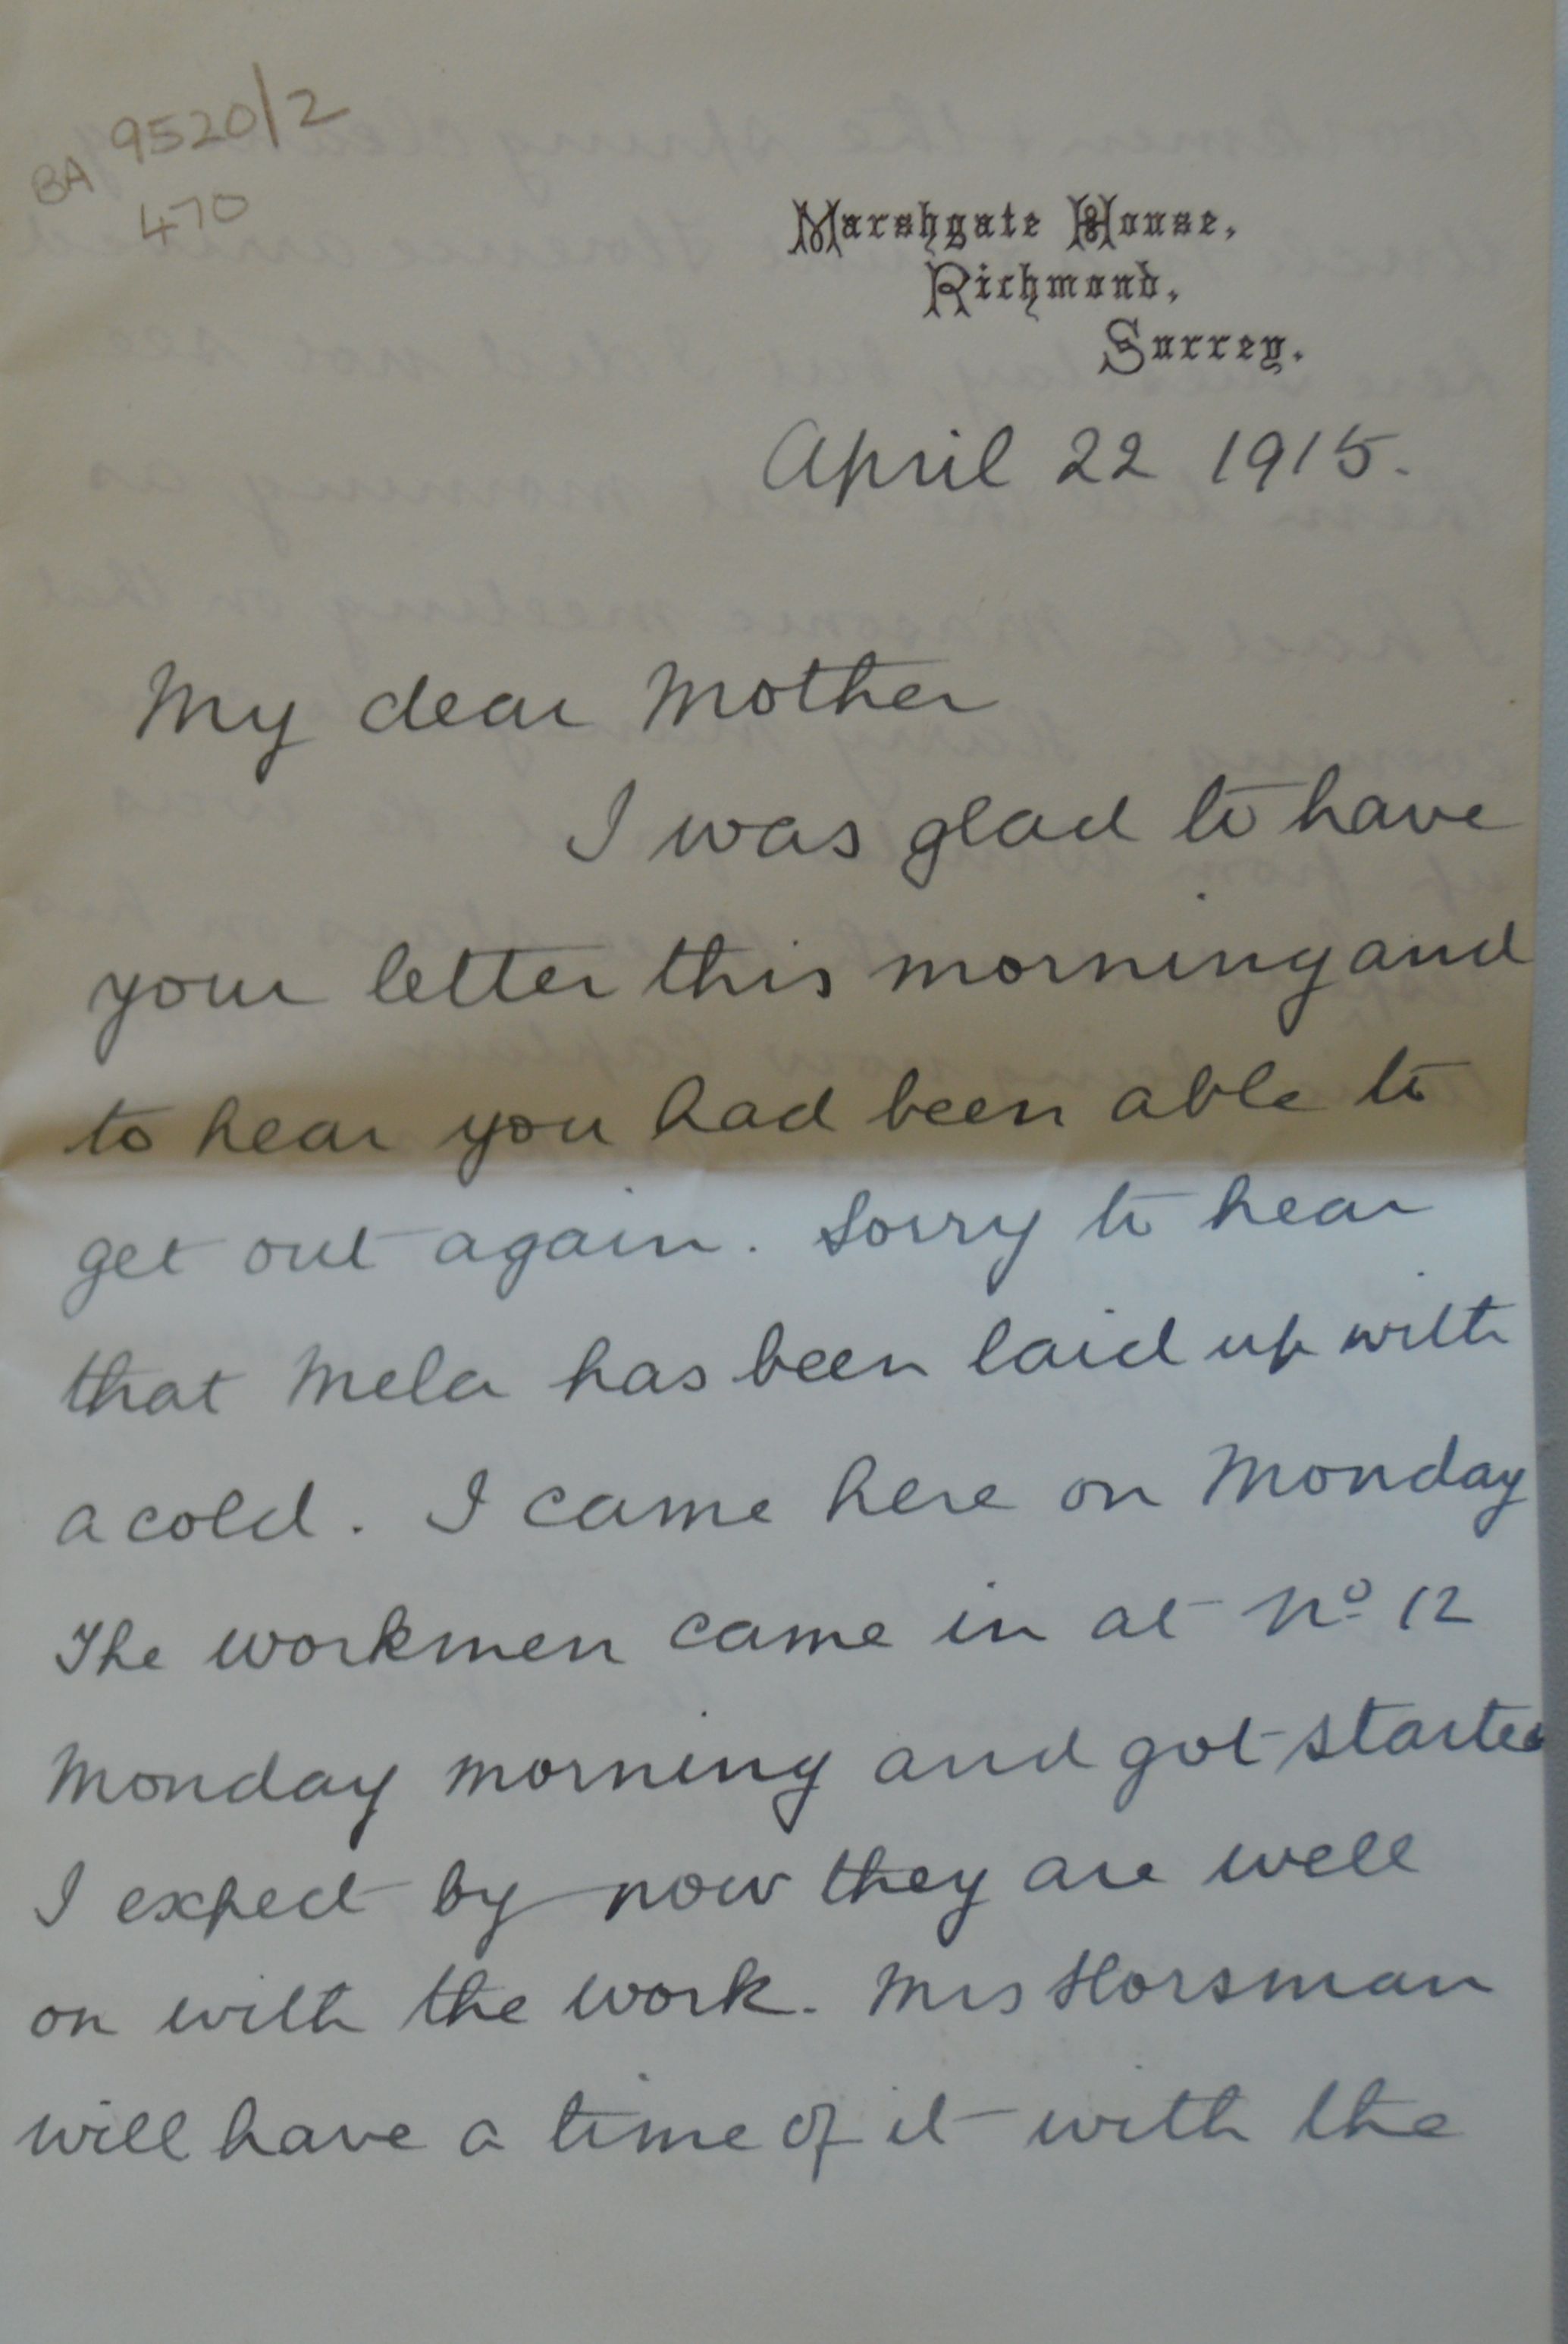 BA 9520/2
470
Marshgate House,
Richmond,
Surrey.
April 22 1915.
My dear Mother
I was glad to have
your letter this morning and
to hear you had been able to
get out again. Sorry to hear
that Mela has been laid up with
a cold. I came here on Monday
The workmen came in at No 12
Monday morning and got started
I expect by now they are well
on with the work. Mrs Horsman
will have a time of it with the